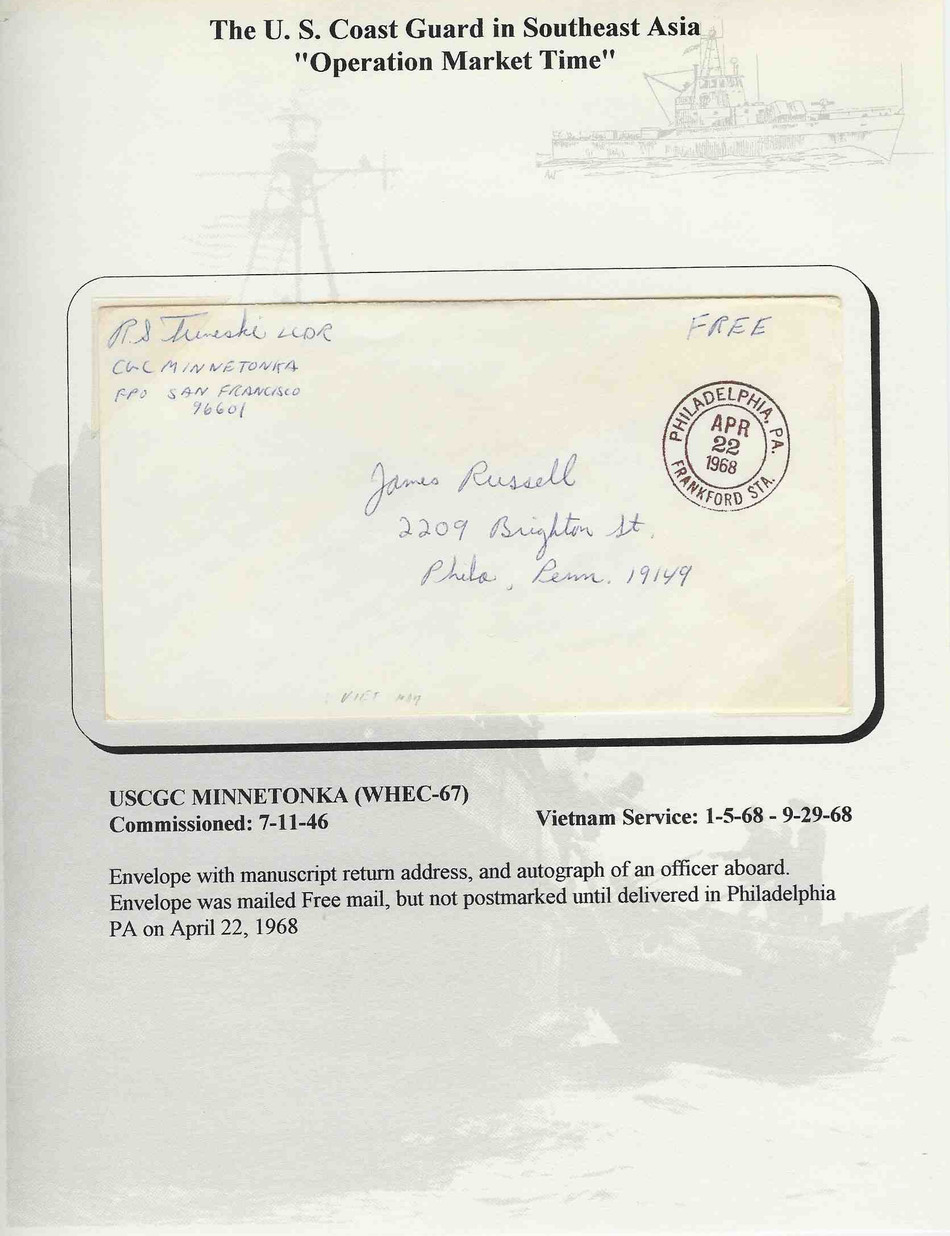 The U. S. Coast Guard in Southeast Asia
"Operation Market Time"
R.S. LCDR
CGC MINNETONKA
FPO SAN FRANCISCO
96601
FREE
PHILADELPHIA, PA.
APR
22
1968
FRANKFORD STA.
James Russell
2209 Brighton St.
Phila, Penn. 19149
VIET
USCGC MINNETONKA (WHEC-67)
Commissioned: 7-11-46
Vietnam Service: 1-5-68 - 9-29-68
Envelope with manuscript return address, and autograph of an officer aboard.
Envelope was mailed Free mail, but not postmarked until delivered in Philadelphia
PA on April 22, 1968